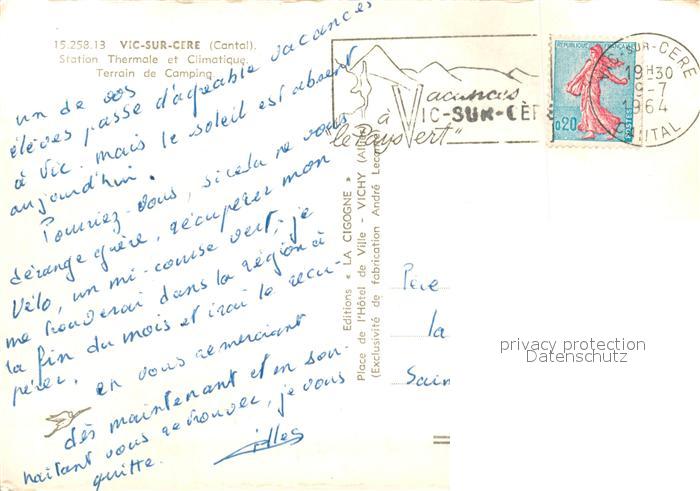 15.258.13 VIC-SUR-CERE (Cantal).
Station Thermale et Climatique
Terrain de Camping
un de vos
élèves passe d'agréable vacances
à Vic. mais le soleil est absent
aujourd'hui.
Pourriez-vous, si cela ne vous
dérange guère, récupérer mon
Vélo, un mi-course vert; je
me trouverai dans la région à
la fin du mois et irai le récu-
pérer.
en vous remerciant
dès maintenant et en sou-
haitant vous retrouver, je vous
quitte.
Gilles
Editions « LA CIGOGNE »
Place de l'Hôtel de Ville - VICHY
(Exclusivité de fabrication André
Vacances
à VIC-SUR-CÈRE
"le Pays Vert"
REPUBLIQUE FRANÇAISE
0,20
POSTES
-SUR-CERE
19H30
9-7
1964
CANTAL
Père
la
Sain
privacy protection
Datenschutz